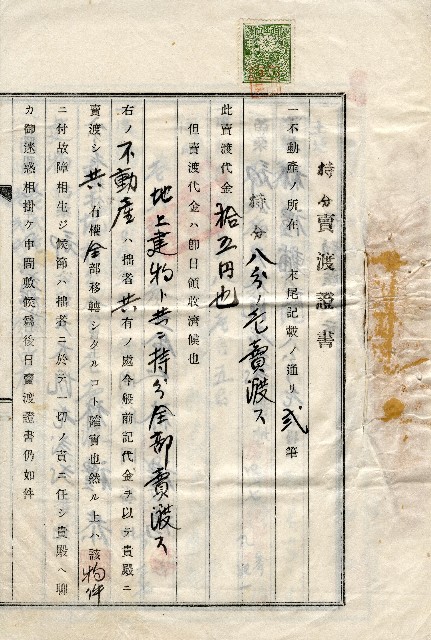 持分賣渡證書
一不動産ノ所在 末尾記載ノ通リ 弐筆
持分 八分ノ 賣渡ス
此賣渡代金 拾五円也
但賣渡代金ハ即日領收濟候也
地上建物ト共ニ持分全部賣渡ス
右ノ不動産ハ拙者共有ノ處今般前記代金ヲ以テ貴殿ニ
賣渡シ共有權全部移轉シタルコト確實也然ル上ハ該物件
ニ付故障相生ジ候節ハ拙者ニ於テ一切ノ責ニ任シ貴殿ヘ聊
カ御迷惑相掛ケ申間敷候爲後日賣渡證書仍如件